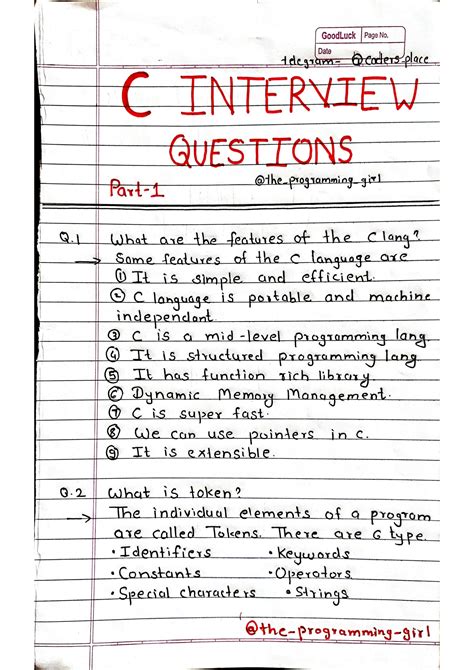 GoodLuck Page No.
Date
Telegram- @coders_place
C INTERVIEW
QUESTIONS
Part-1 @the_programming_girl
Q.1 What are the features of the C lang?
→ Some features of the C language are
① It is simple and efficient.
② C language is portable and machine
independant.
③ C is a mid-level programming lang.
④ It is structured programming lang.
⑤ It has function rich library.
⑥ Dynamic Memory Management.
⑦ C is super fast.
⑧ We can use pointers in C.
⑨ It is extensible.
Q.2 What is token?
→ The individual elements of a program
are called Tokens. There are 6 type.
• Identifiers • Keywords
• Constants • Operators
• Special characters • Strings
@the-programming-girl